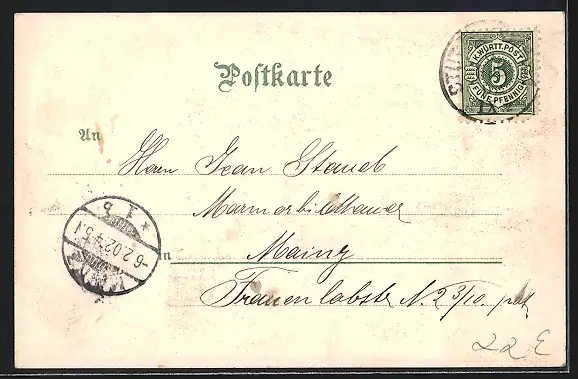 Postkarte
K. WÜRTT. POST
5
FÜNF PFENNIG
STUT
An
Herrn Jean Staueb
Marmorbildhauer
in Mainz
Frauenlobstr N. 23/10. part.
1 b
-6.2.02. 4-5 N
22 E